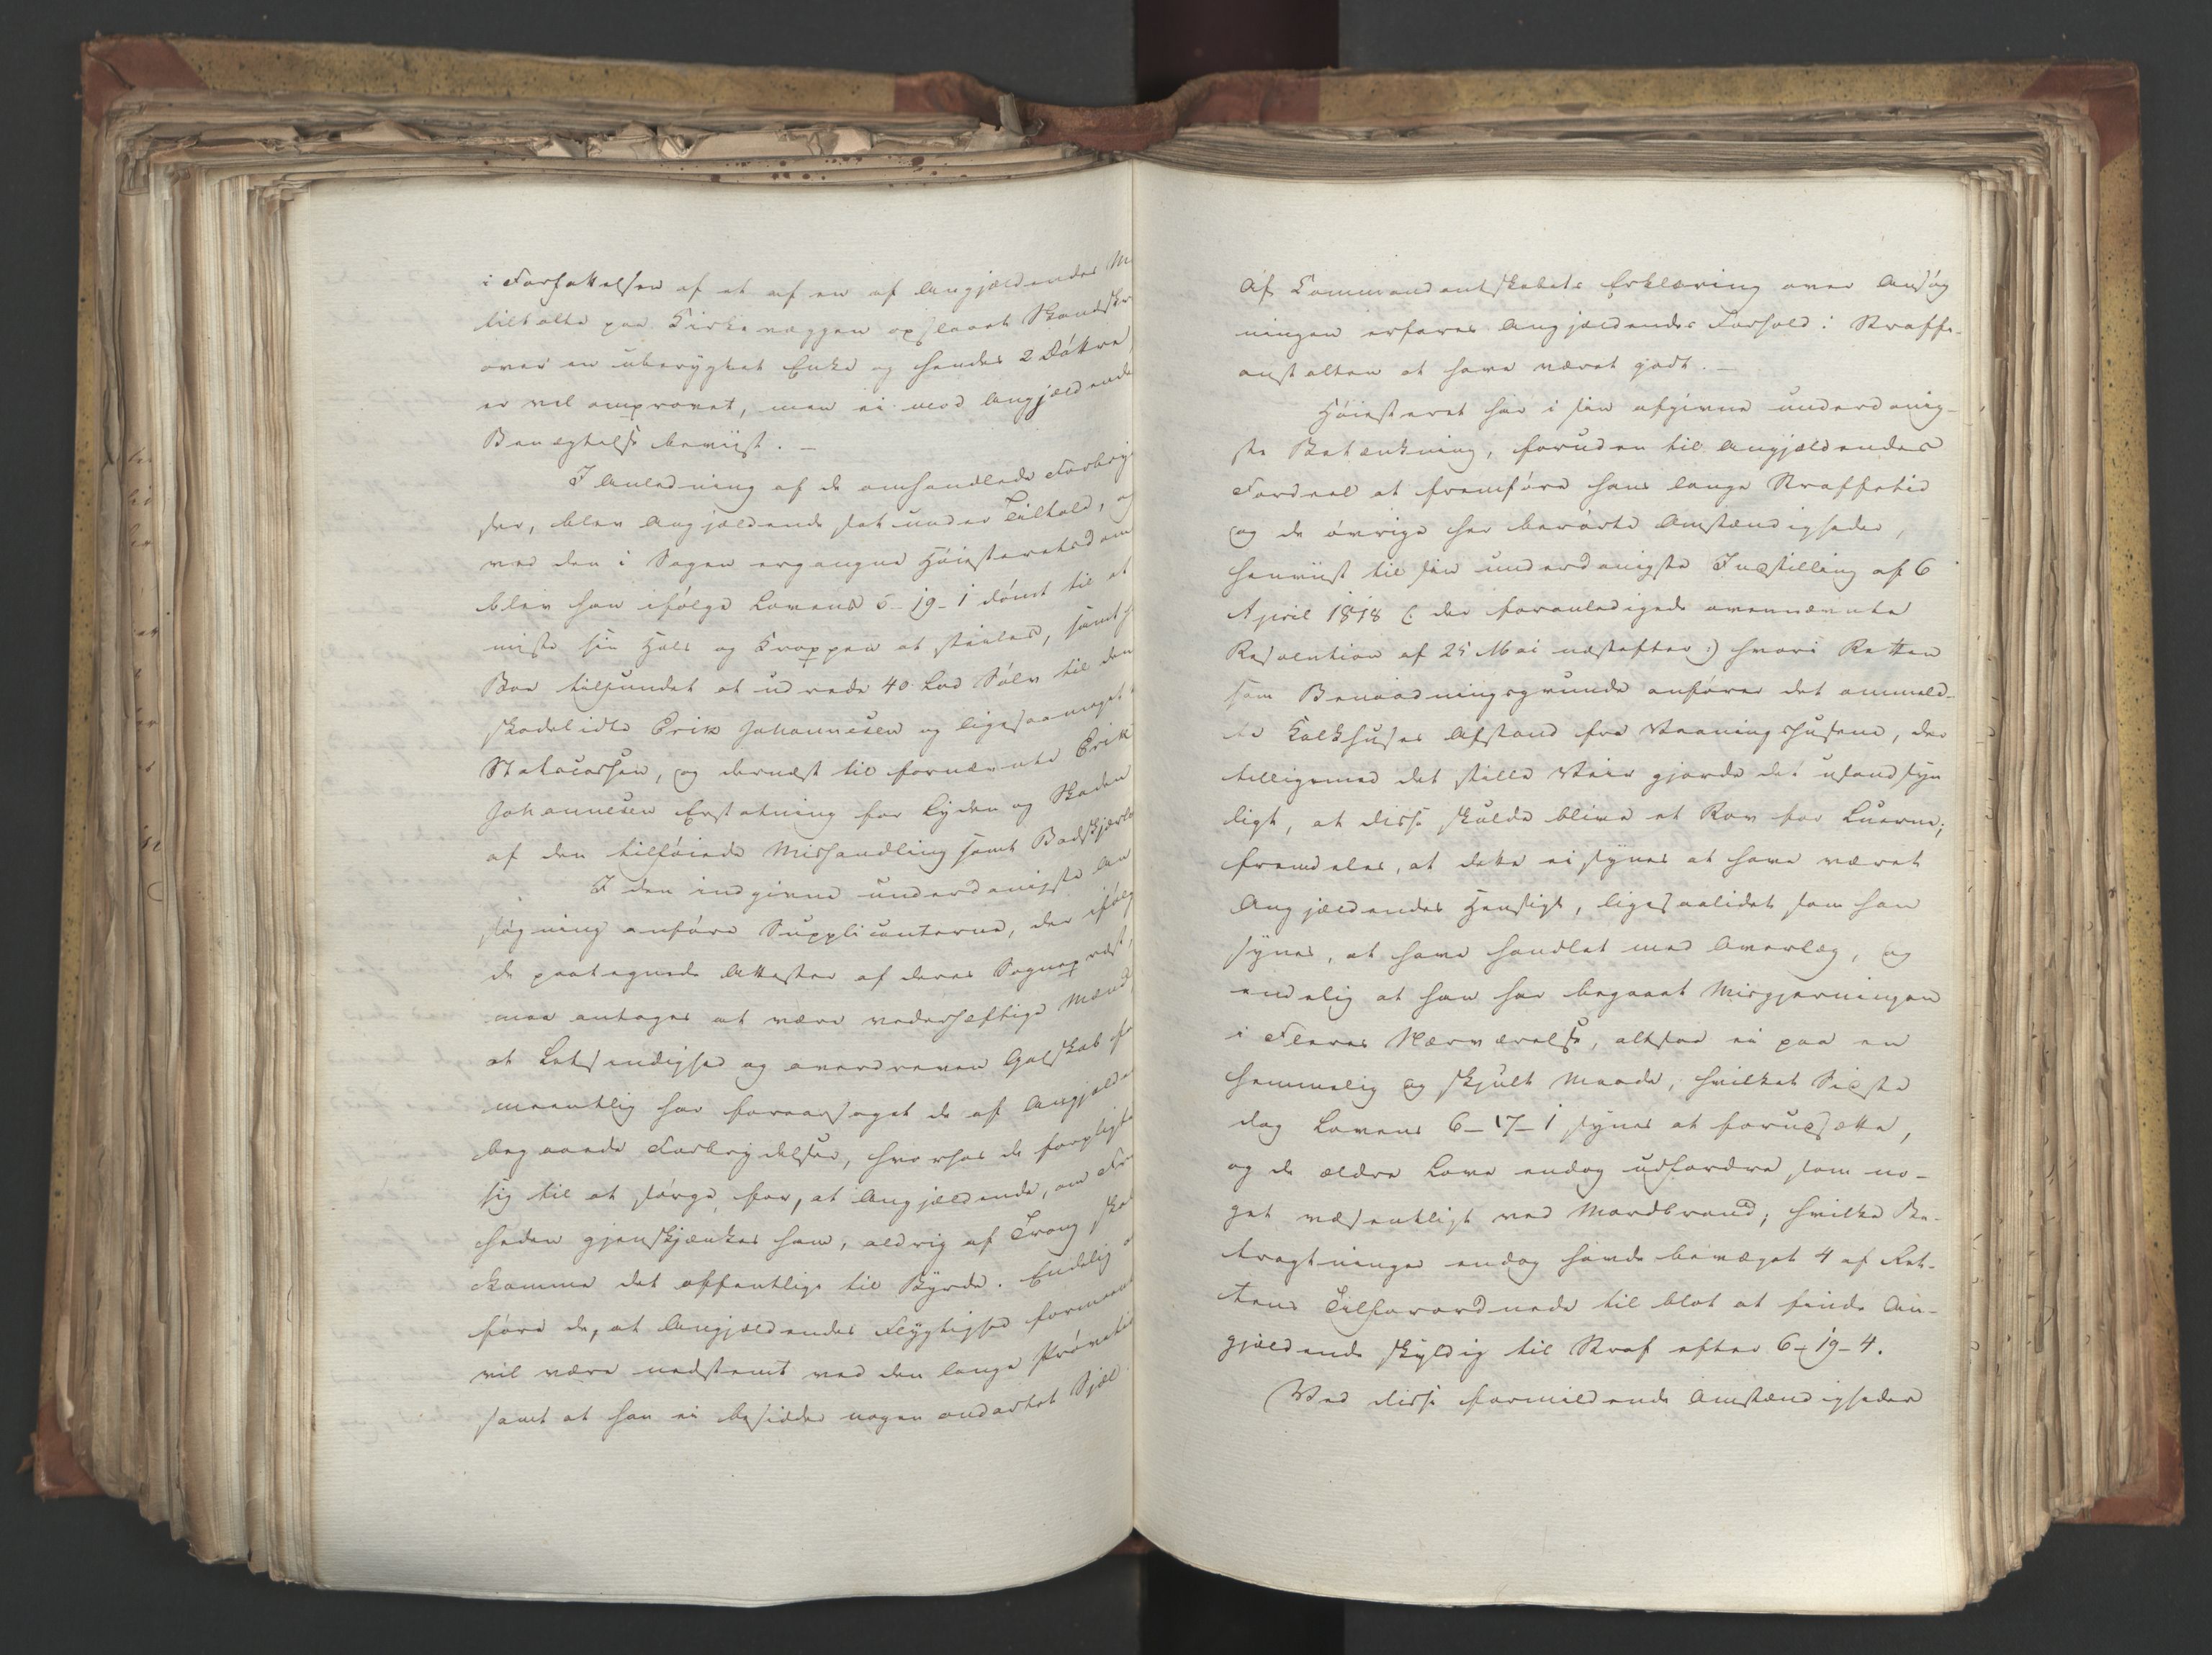 i Forfattelsen af et af en af Angjældendes M
tilholte paa Kirkevæggen opslaaet Skandskr
over en uberygtet Enke og hendes 2 Døttre
er vel omprovet, men ei mod Angjældende
Benægtelse beviist. –
I Anledning af de omhandlede Forbry
ser, blev Angjældende sat under Tiltale, og
ved den i Sagen ergangne Høiesteretsdom
blev han ifølge Lovens 6-19-1 dømt til at
miste sin Hals og Kroppen at steiles, samt h
Boe tilfundet at udrede 40 Lod Sølv til den
skadelidte Erik Johannesen og ligesaameget
Statscassen, og dernæst til fornævnte Erik
Johannesen Erstatning for Lyden og Skaden
af den tilføiede Mishandling samt Badskjærlø
I den indgivne underdanigste An
søgning anføre Supplicanterne, der ifølg
de paategnede Attester af deres Sognepræst,
maa antages at være vederhæftige Mænd,
at Letsindighed og overdreven Galskab for
meentlig har foraarsaget de af Angjælde
begaaede Forbrydelser, hvorhos de forpligte
sig til at sørge for, at Angjældende, om Fri
heden gjenskjænkes ham, aldrig af Trang skal
komme det offentlige til Byrde. Endelig a
føre de, at Angjældendes Flygtighed formeent
vil være nedstemt ved den lange Prøvetid
samt at han ei besidder nogen ondartet Sjæl.
Af Commandantskabets Erklæring over Ansøg
ningen erfares Angjældendes Forhold i Straffe-
anstalten at have været godt. –
Høiesteret har i sin afgivne underdanig-
ste Betænkning, foruden til Angjældendes
Fordeel at fremføre hans lange Straffetid
og de øvrige her berørte Omstændigheder,
henviist til sin underdanigste Indstilling af 6
April 1818 (: der foranledigede ovennævnte
Resolution af 25 Mai næstefter :) hvori Retten
som Benaadningsgrunde anfører det ommeld-
te Kalkhuses Afstand fra Vaaningshusene, der
tilligemed det stille Veir gjorde det usandsyn
ligt, at disse skulde blive et Rov for Luerne;
fremdeles, at dette ei synes at have været
Angjældendes Hensigt, ligesaalidet som han
synes, at have handlet med Overlæg, og
endelig at han har begaaet Misgjerningen
i Fleres Nærværelse, altsaa ei paa en
hemmelig og skjult Maade, hvilket Sidste
dog Lovens 6-17-1 synes at forudsætte,
og de ældre Love endog udfordre som no-
get væsentligt ved Mordbrand; hvilke Be-
tragtninger endog havde bevæget 4 af Ret-
tens Tilforordnede til blot at finde An-
gjældende skyldig til Straf efter 6-19-4.
Ved disse formildende Omstændigheder